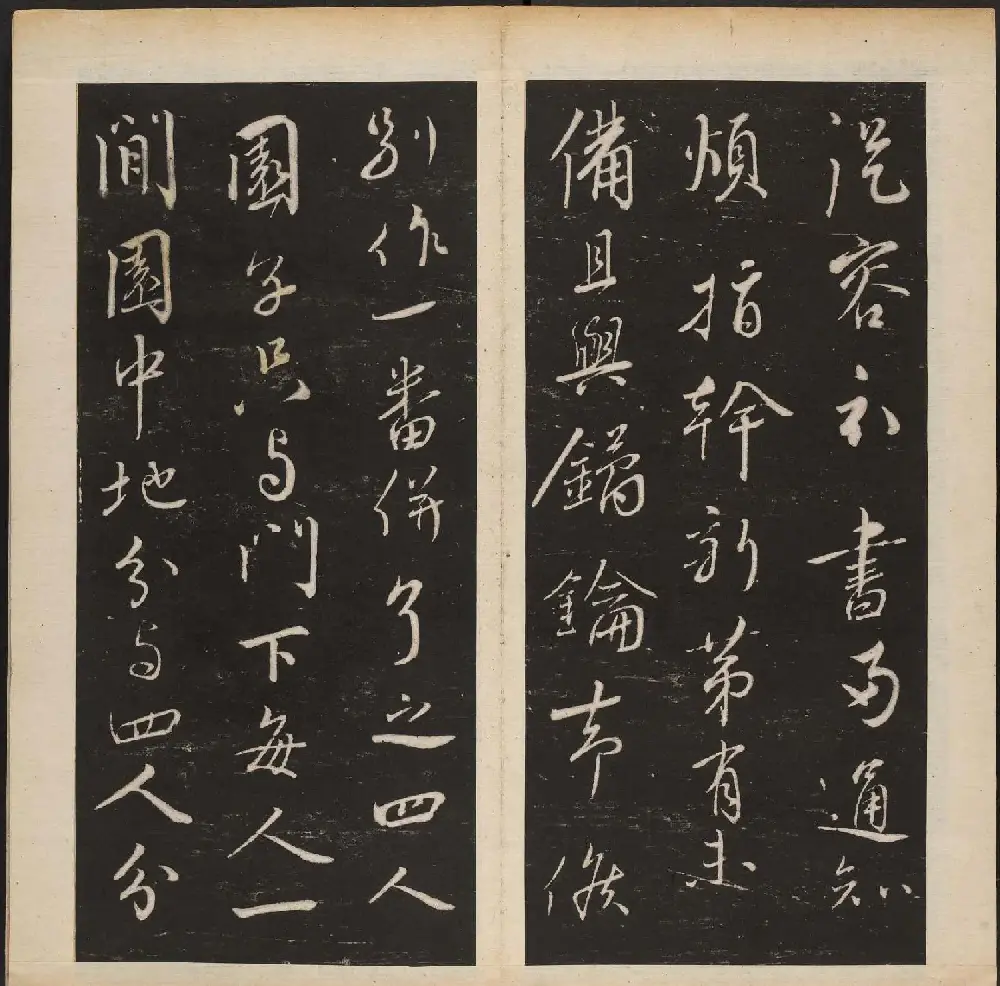 從容書通知
煩指幹新第有未
備且與鐍鑰却候
別作一番併了之四人
園子只与門下每人一
間園中地分与四人分